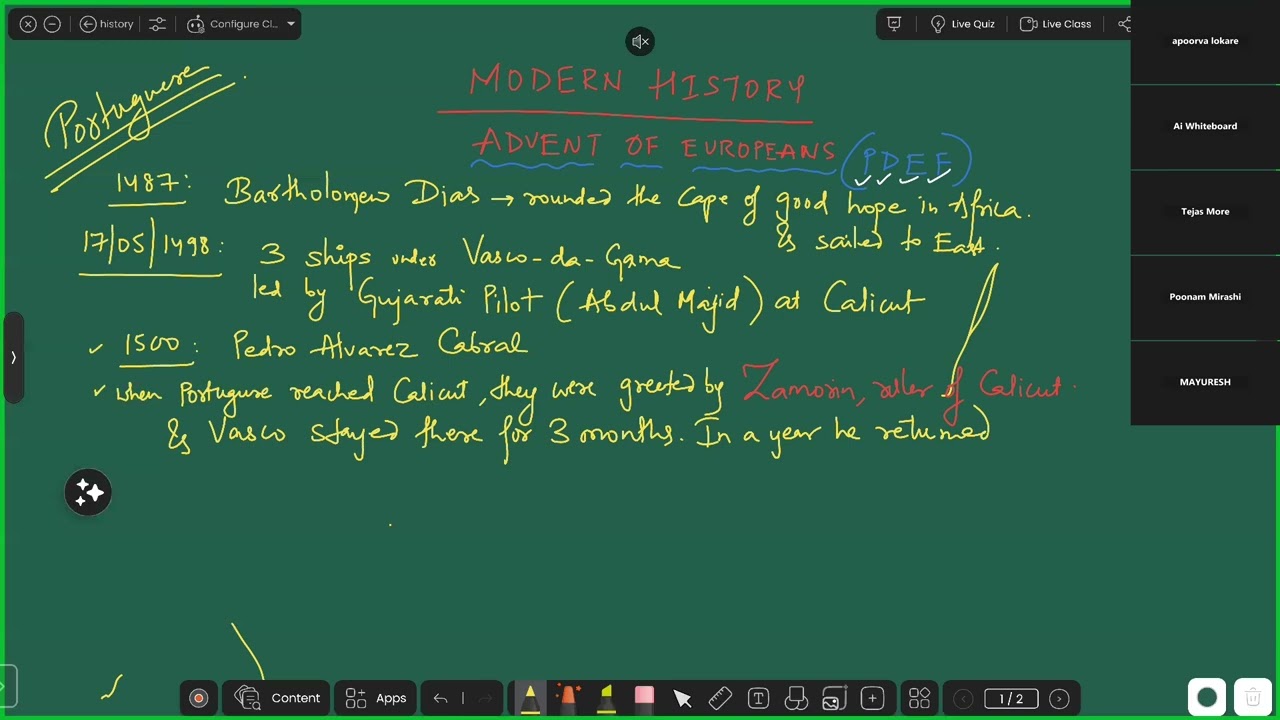 history
Configure Cl...
Live Quiz
Live Class
apoorva lokare
Ai Whiteboard
Tejas More
Poonam Mirashi
MAYURESH
Portuguese
MODERN HISTORY
ADVENT OF EUROPEANS (PDEF)
1487: Bartholomew Dias → rounded the Cape of good hope in Africa.
& sailed to East.
17/05/1498: 3 ships under Vasco-da-Gama
led by Gujarati Pilot (Abdul Majid) at Calicut
✓ 1500: Pedro Alvarez Cabral
✓ when Portuguse reached Calicut, they were greeted by Zamorin, ruler of Calicut.
& Vasco stayed there for 3 months. In a year he returned
Content
Apps
1/2